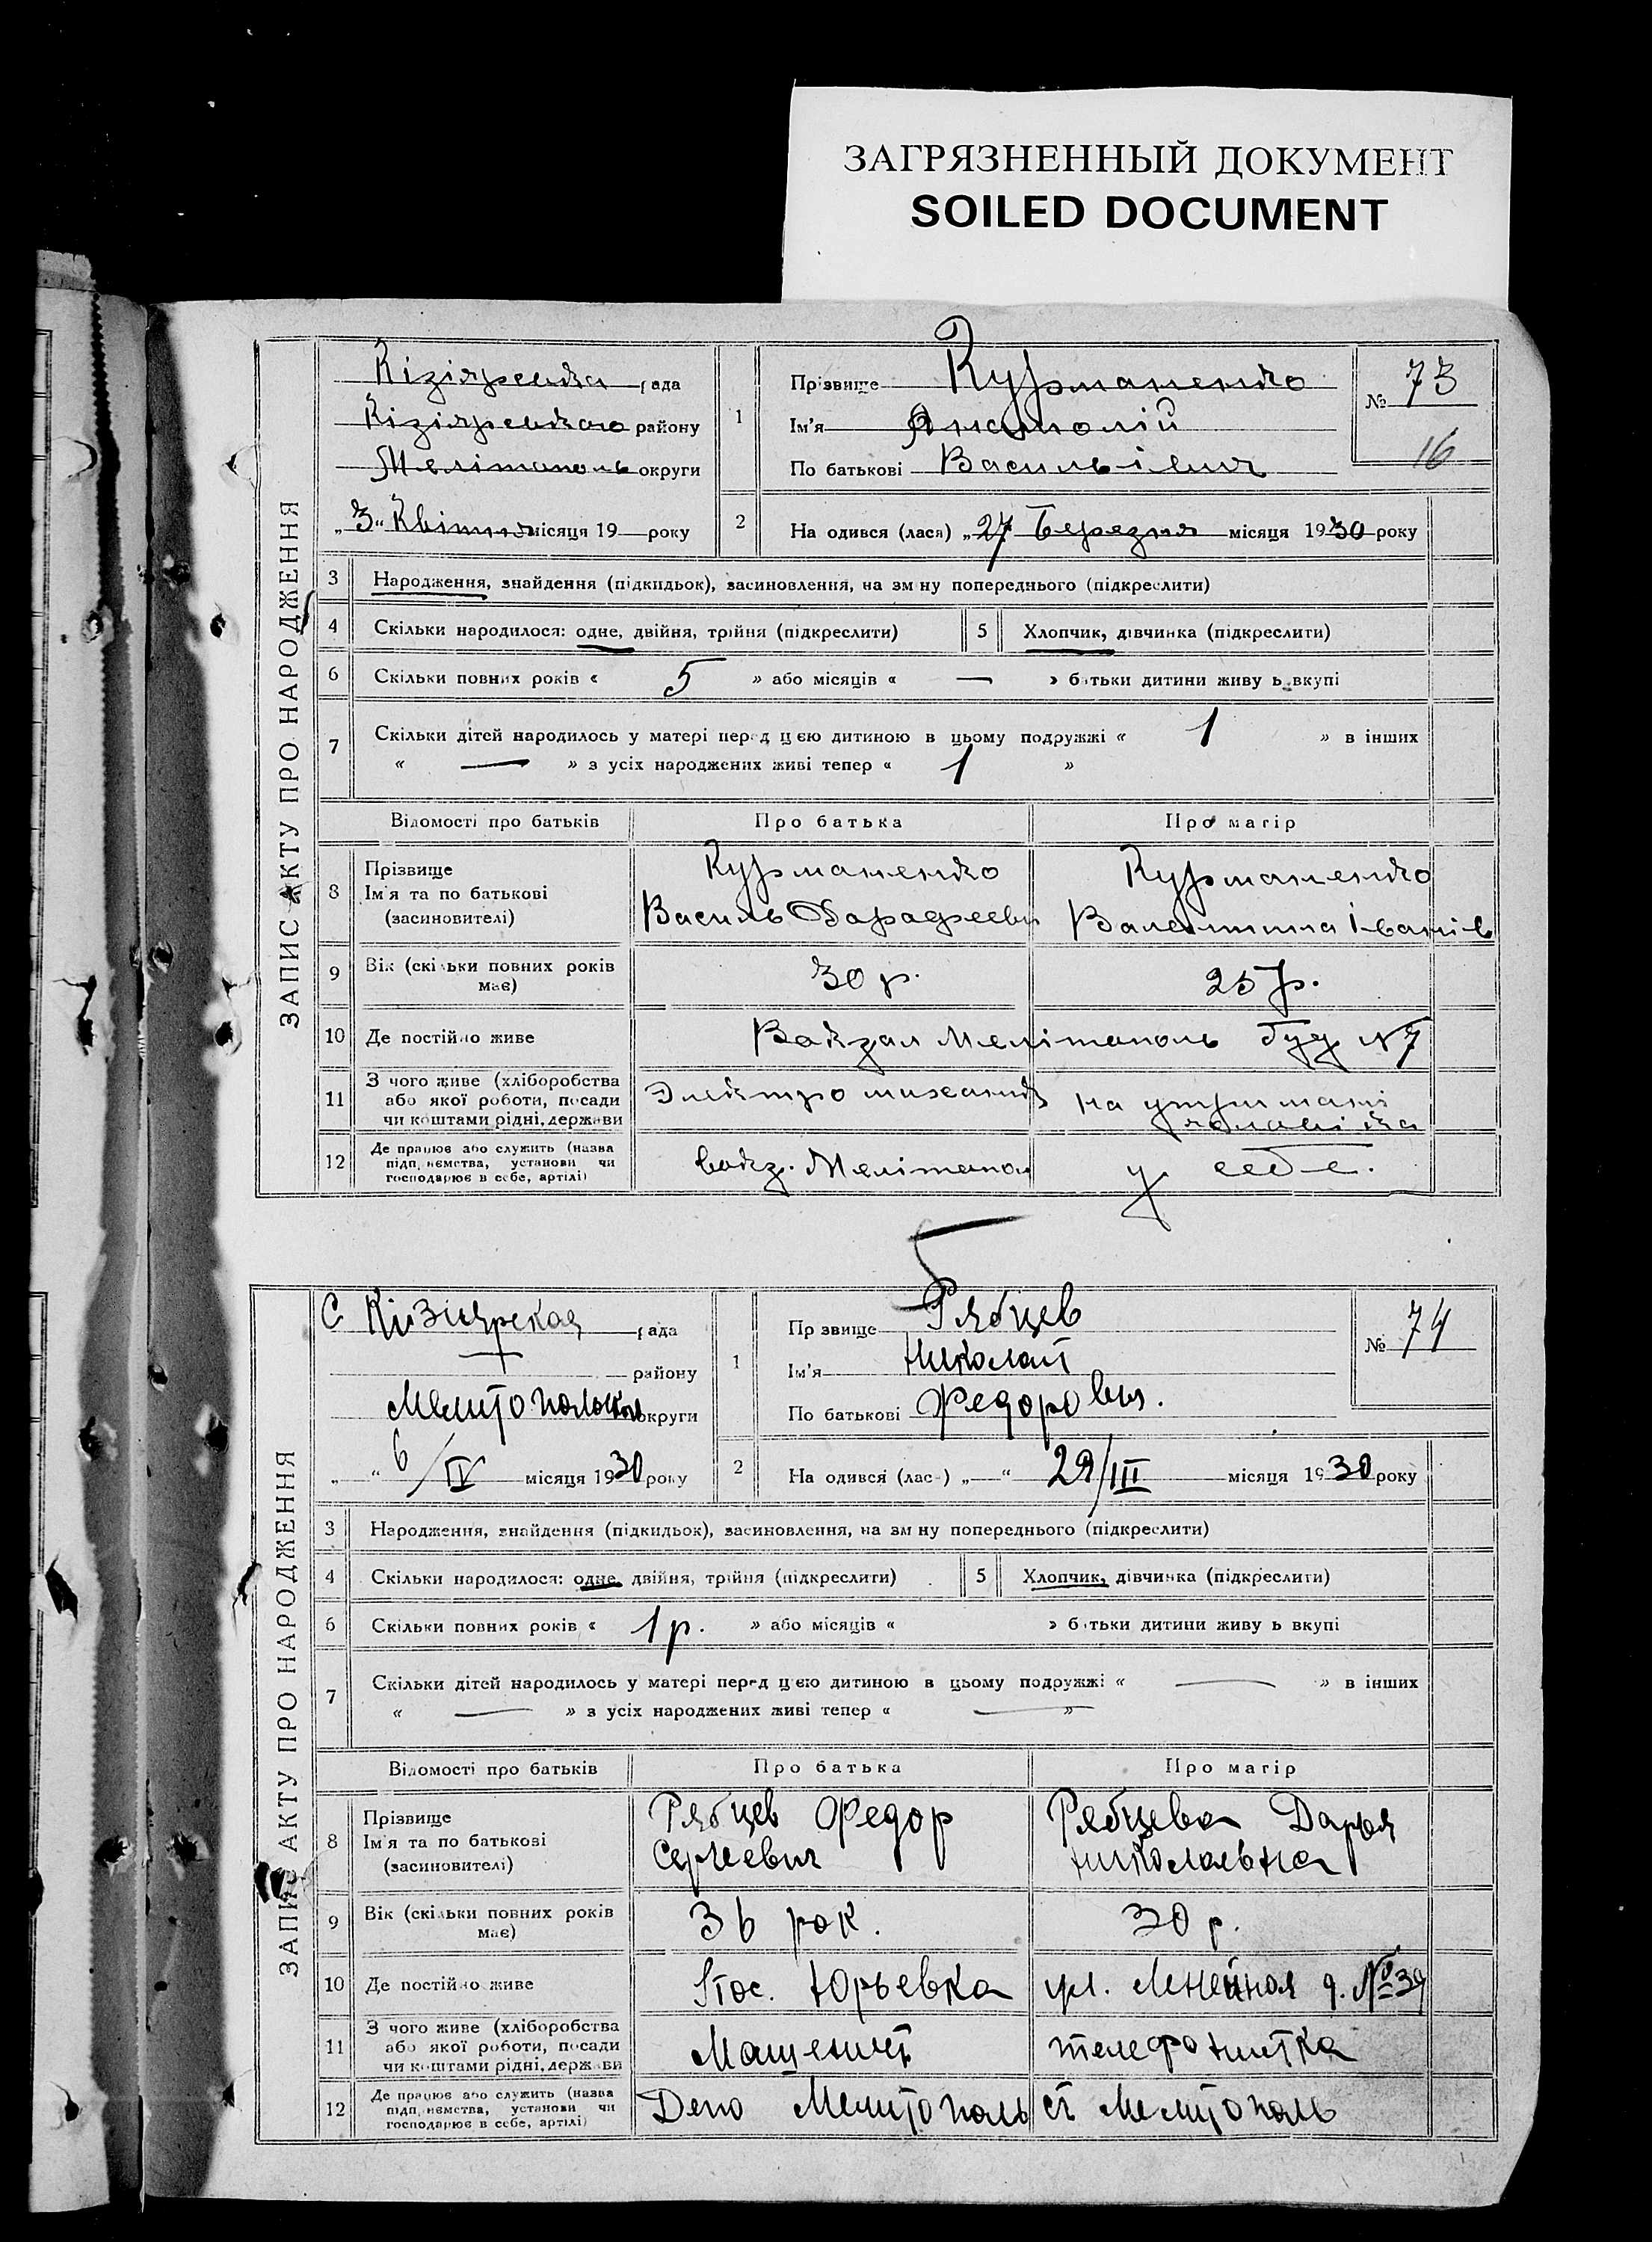 ЗАГРЯЗНЕННЫЙ ДОКУМЕНТ
SOILED DOCUMENT
ЗАПИС АКТУ ПРО НАРОДЖЕННЯ
Кізіярська рада
Кізіярсвкого району
Мелітополь округи
„3“ Квітня місяця 19 року
1
Прізвище Курманенко
Ім'я Анатолій
По батькові Васильівич
№ 73
16
2 На одився (лася) „27 Березня місяця 1930 року
3 Народження, знайдення (підкидьок), засиновлення, на зм ну попереднього (підкреслити)
4 Скільки народилося: одне, двійня, трійня (підкреслити) 5 Хлопчик, дівчинка (підкреслити)
6 Скільки повних років « 5 » або місяців « — » батьки дитини живу ь вкупі
7 Скільки дітей народилось у матері перед цією дитиною в цьому подружжі « 1 » в інших
« — » з усіх народжених живі тепер « 1 »
Відомості про батьків Про батька Про матір
8 Прізвище
Ім'я та по батькові
(засиновителі)
Курманенко
Василь
Курманенко
Валентина Іванів
9 Вік (скільки повних років
має)
30 р. 25 р.
10 Де постійно живе Вокзал Мелітополь буд №7
11 З чого живе (хліборобства
або якої роботи, посади
чи коштами рідні, держави
Электро механик на утримані
чоловіка
12 Де працює або служить (назва
підприємства, установи чи
господарює в себе, артілі)
вокз. Мелітопол у себе.
5
ЗАПИС АКТУ ПРО НАРОДЖЕННЯ
С Кизиярская рада
району
Мелитопольск округи
„ “ 6/IV місяця 1930 року
1
Пр звище Рябцев
Ім'я Николай
По батькові Федорович.
№ 74
2 На одився (лася) „—“ 29/III місяця 1930 року
3 Народження, знайдення (підкидьок), засиновлення, на зм ну попереднього (підкреслити)
4 Скільки народилося: одне, двійня, трійня (підкреслити) 5 Хлопчик, дівчинка (підкреслити)
6 Скільки повних років « 1 р. » або місяців « » батьки дитини живу ь вкупі
7 Скільки дітей народилось у матері перед цією дитиною в цьому подружжі « — » в інших
« — » з усіх народжених живі тепер « — »
Відомості про батьків Про батька Про матір
8 Прізвище
Ім'я та по батькові
(засиновителі)
Рябцев Федор
Сергеевич
Рябцева Дарья
Николаевна
9 Вік (скільки повних років
має)
36 рок. 30 р.
10 Де постійно живе Пос. Юрьевка ул. Линейная д. №39
11 З чого живе (хліборобства
або якої роботи, посади
чи коштами рідні, держави
Машенист телефонистка
12 Де працює або служить (назва
підприємства, установи чи
господарює в себе, артілі)
Депо Мелитополь ст Мелитополь